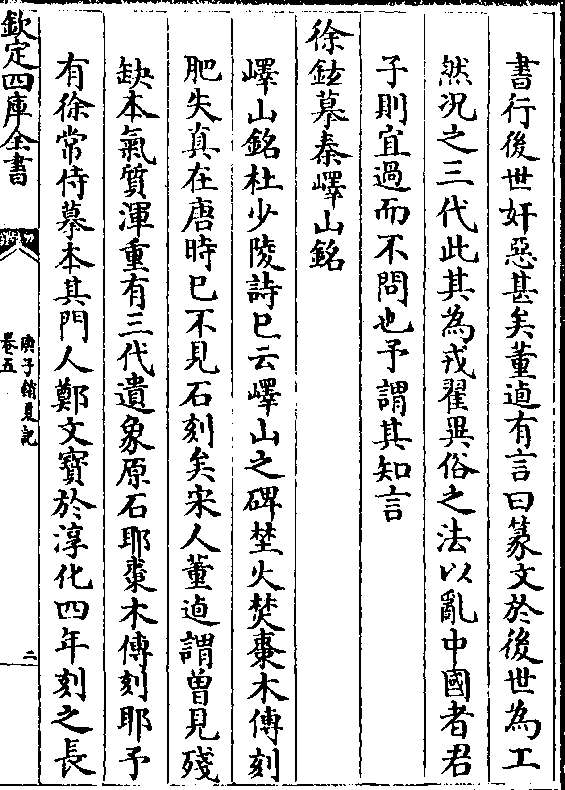 書行後世奸惡甚矣董逌有言曰篆文於後世為工
然況之三代此其為戎翟異俗之法以亂中國者君
子則宜過而不問也予謂其知言
徐鉉摹秦嶧山銘
嶧山銘杜少陵詩已云嶧山之碑埜火焚棗木傳刻
肥失真在唐時已不見石刻矣宋人董逌謂曾見殘
缺本氣質渾重有三代遺象原石耶棗木傳刻耶予
有徐常侍摹本其門人鄭文寶於淳化四年刻之長
欽定四庫全書
庚子銷夏記
卷五
二